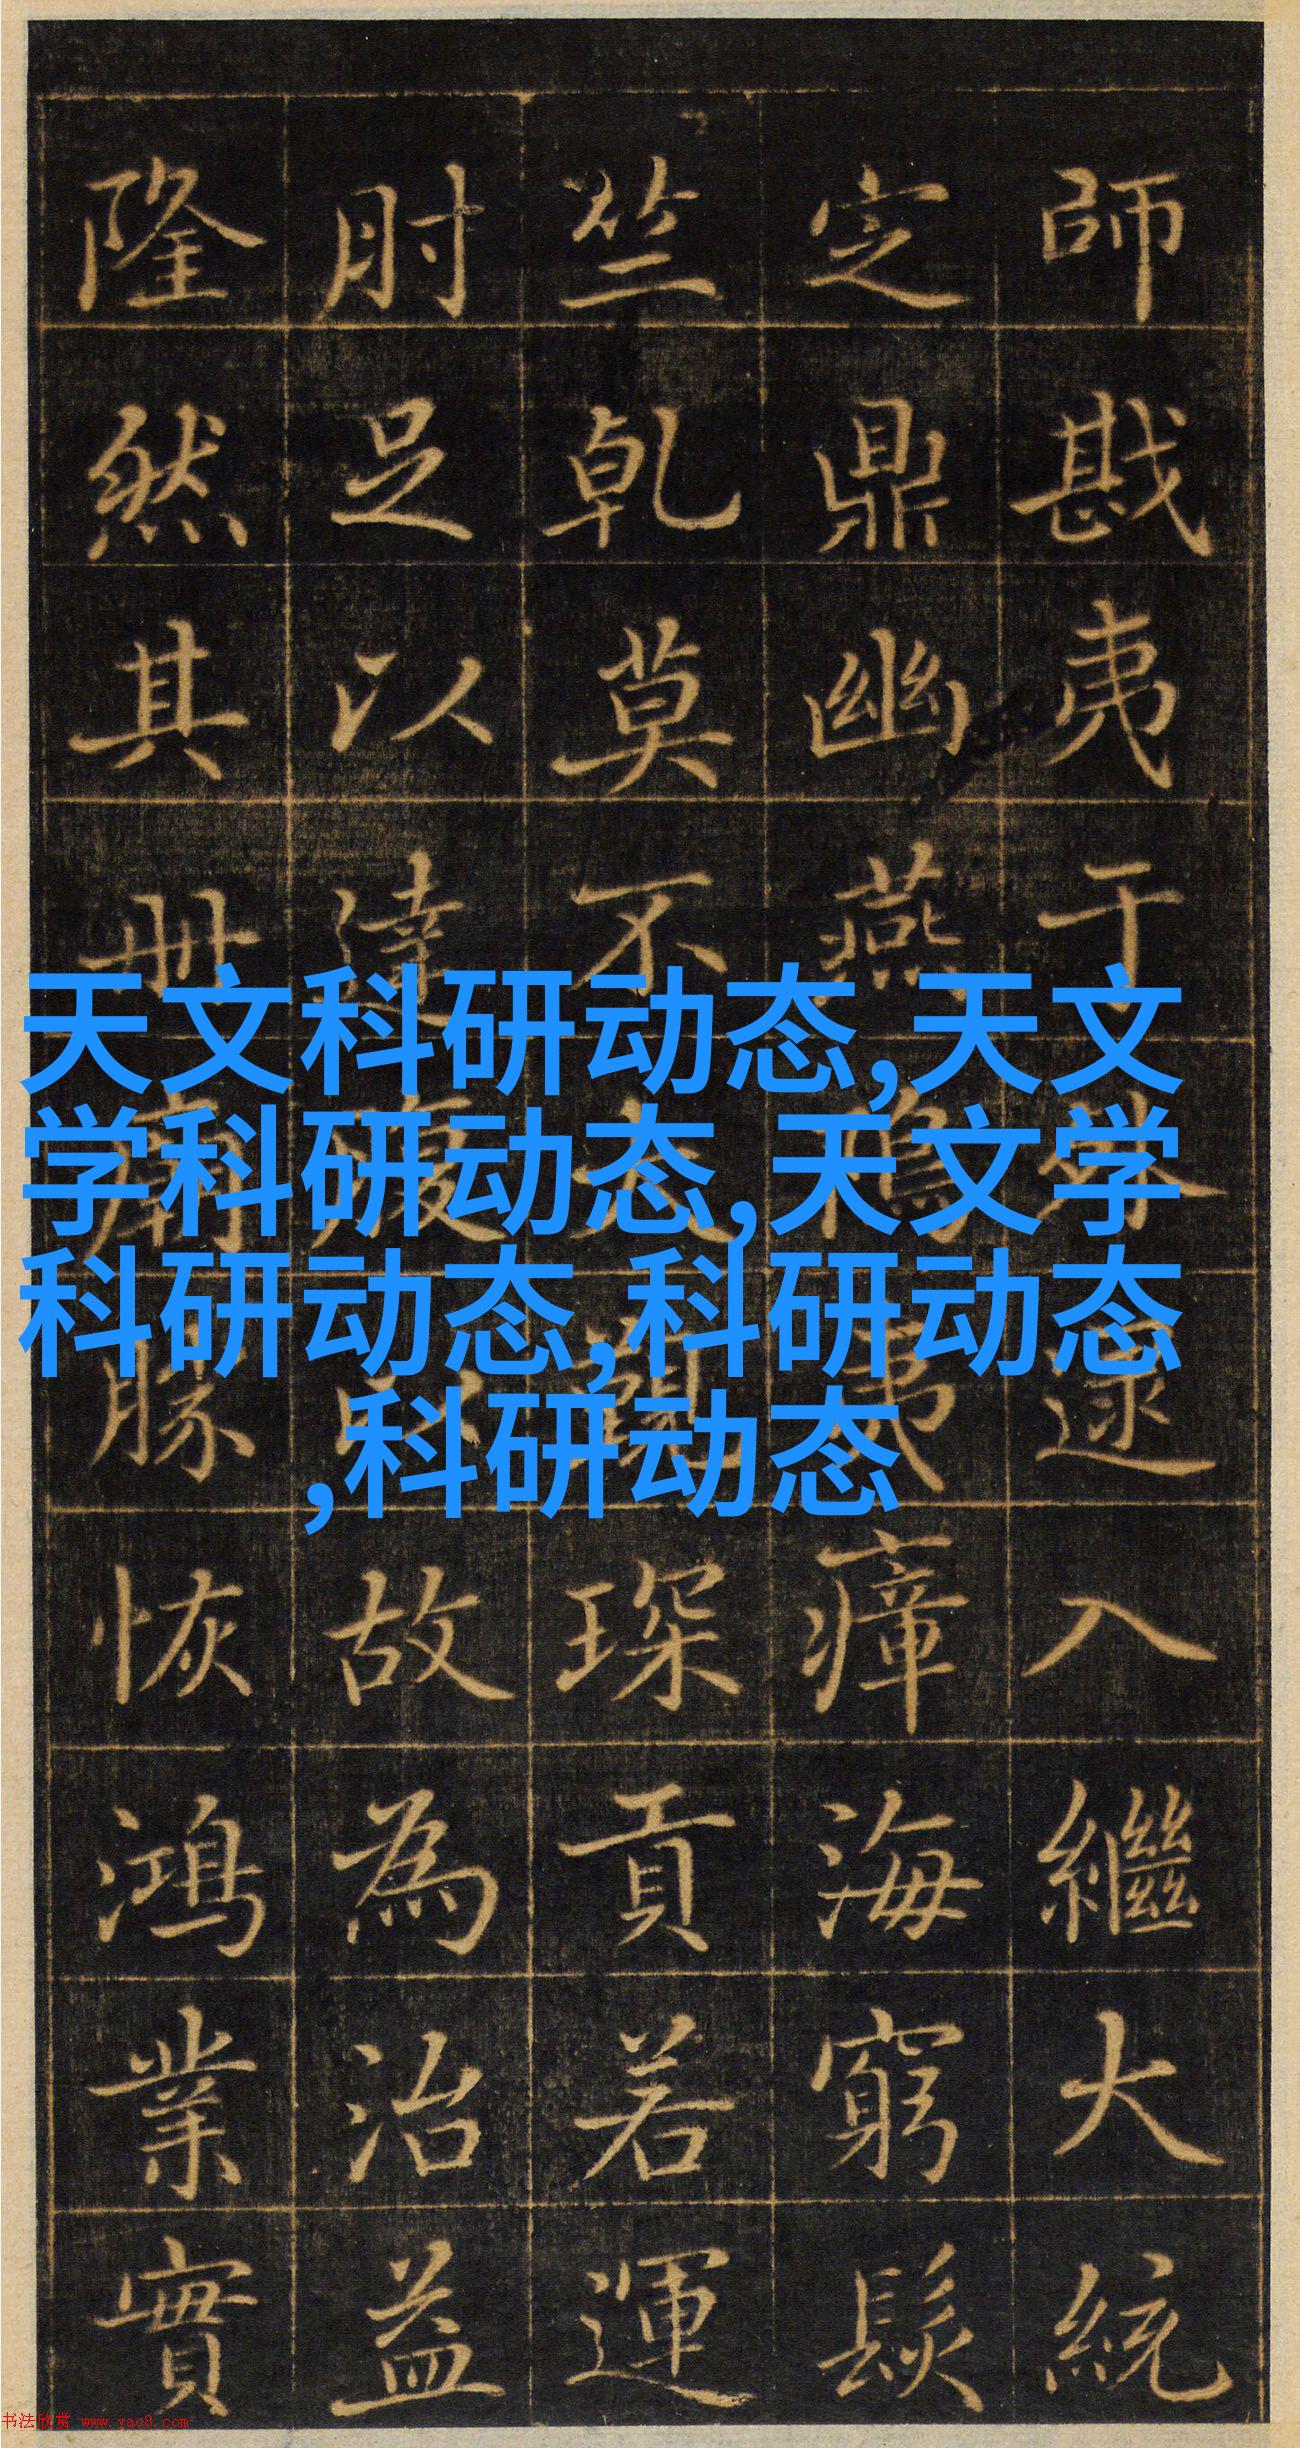 師戡夷于逮入繼大統
定鼎幽燕夷瘴海窮髮
竺乾莫不琛貢若運
肘足以達以故為治益
隆然其冊勝恢鴻業實
天文科研动态,天文
学科研动态,天文学
科研动态,科研动态
,科研动态
书法欣赏 www.yac8.com